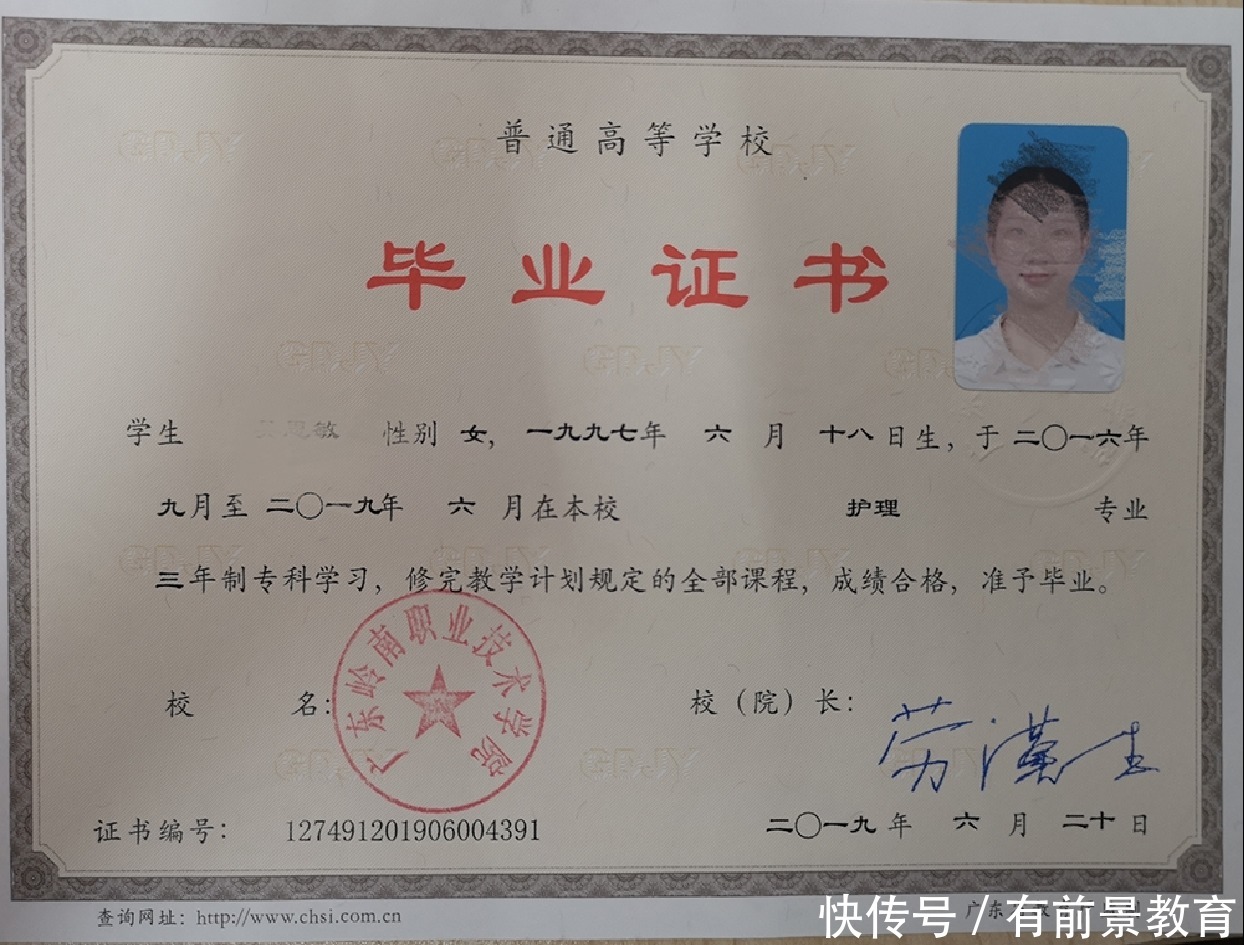 普通高等学校
毕业证书
学生 思敏 性别 女，一九九七年 六 月 十八日生，于二〇一六年
九月至 二〇一九年 六 月在本校 护理 专业
三年制专科学习，修完教学计划规定的全部课程，成绩合格，准予毕业。
校 名： 校（院）长：
广东岭南职业技术学院
劳汉生
证书编号： 127491201906004391 二〇一九年 六 月 二十日
查询网址：http://www.chsi.com.cn
快传号 / 有前景教育